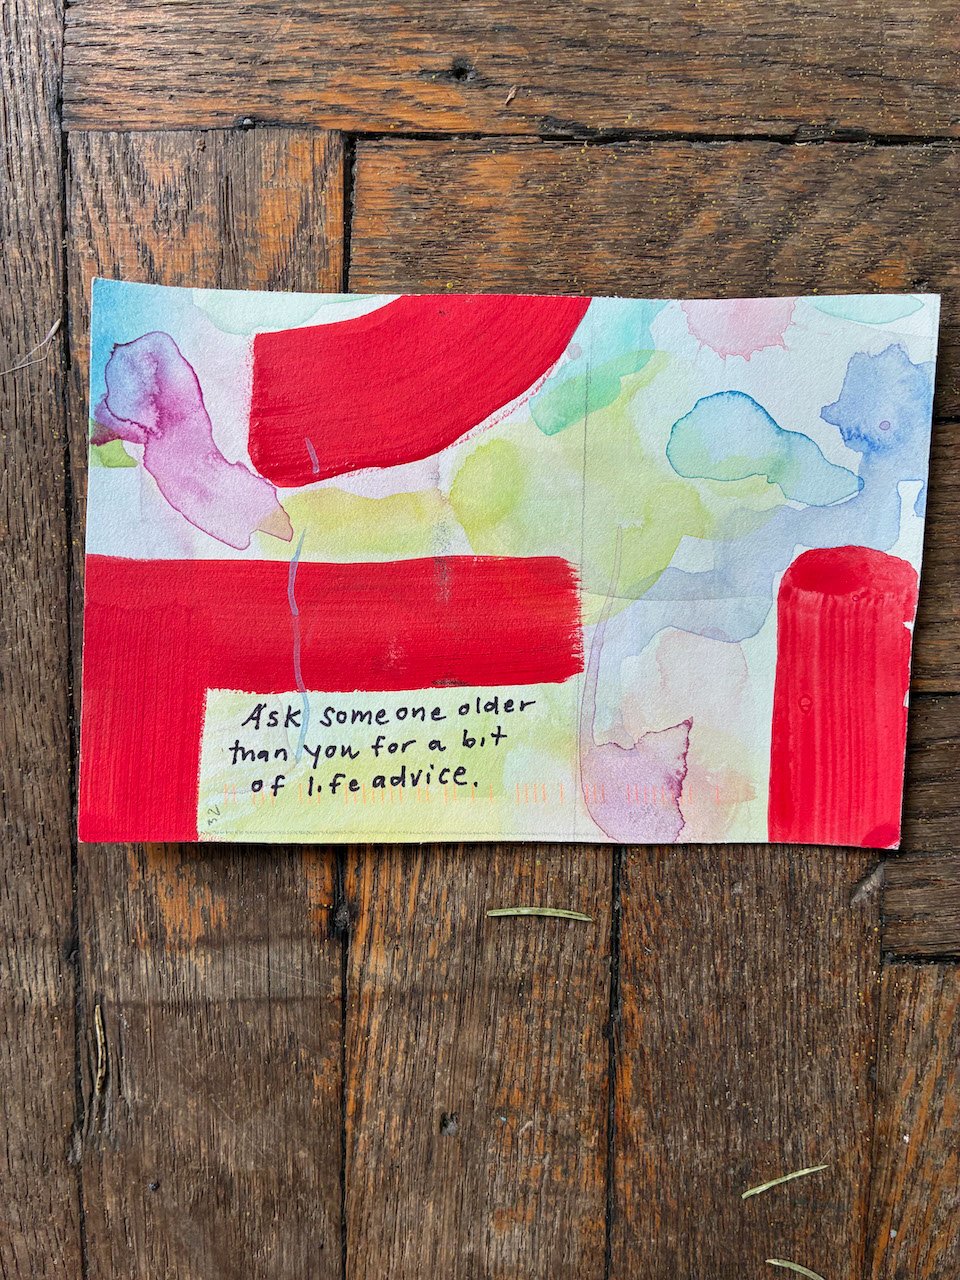 Ask someone older
than you for a bit
of life advice.
32